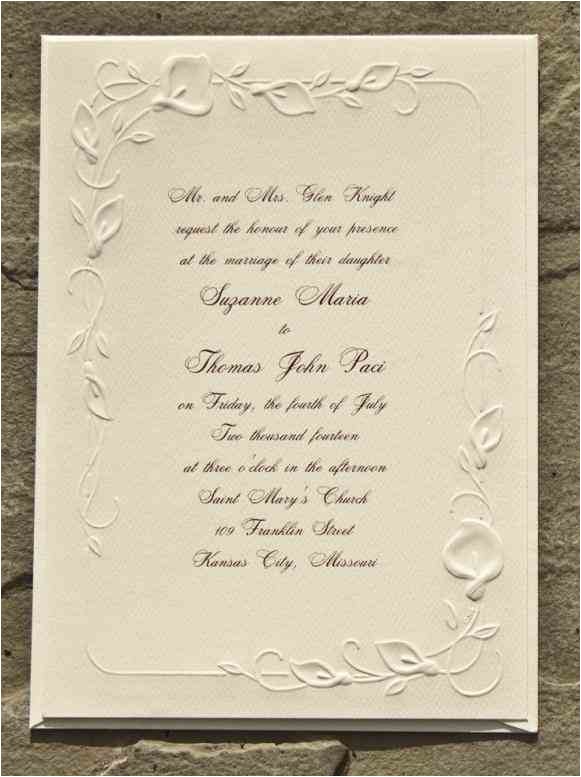 Mr. and Mrs. Glen Knight
request the honour of your presence
at the marriage of their daughter
Suzanne Maria
to
Thomas John Paci
on Friday, the fourth of July
Two thousand fourteen
at three o'clock in the afternoon
Saint Mary's Church
109 Franklin Street
Kansas City, Missouri